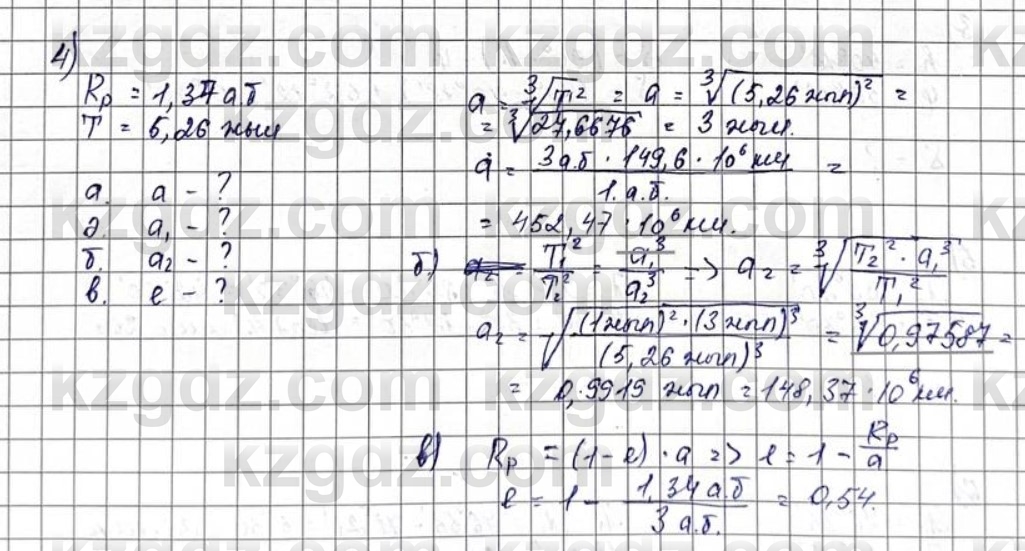 4)
Rp = 1,34 а.б
T = 5,26 жыл
а. a - ?
ә. a₁ - ?
б. a₂ - ?
в. e - ?
a = ³√T² = a = ³√(5,26 жыл)² =
= ³√27,6676 = 3 жыл.
a = 3 а.б · 149,6 · 10⁶ км / 1. а.б. =
= 452,47 · 10⁶ км.
б) T₁² / T₂² = a₁³ / a₂³ => a₂ = ³√T₂² · a₁³ / T₁²
a₂ = √(1 жыл)² · (3 жыл)³ / (5,26 жыл)³ = ³√0,97587 =
= 0,9919 жыл = 148,37 · 10⁶ км.
в) Rp = (1 - e) · a => e = 1 - Rp / a
e = 1 - 1,34 а.б / 3 а.б. = 0,54.
kzgdz.com